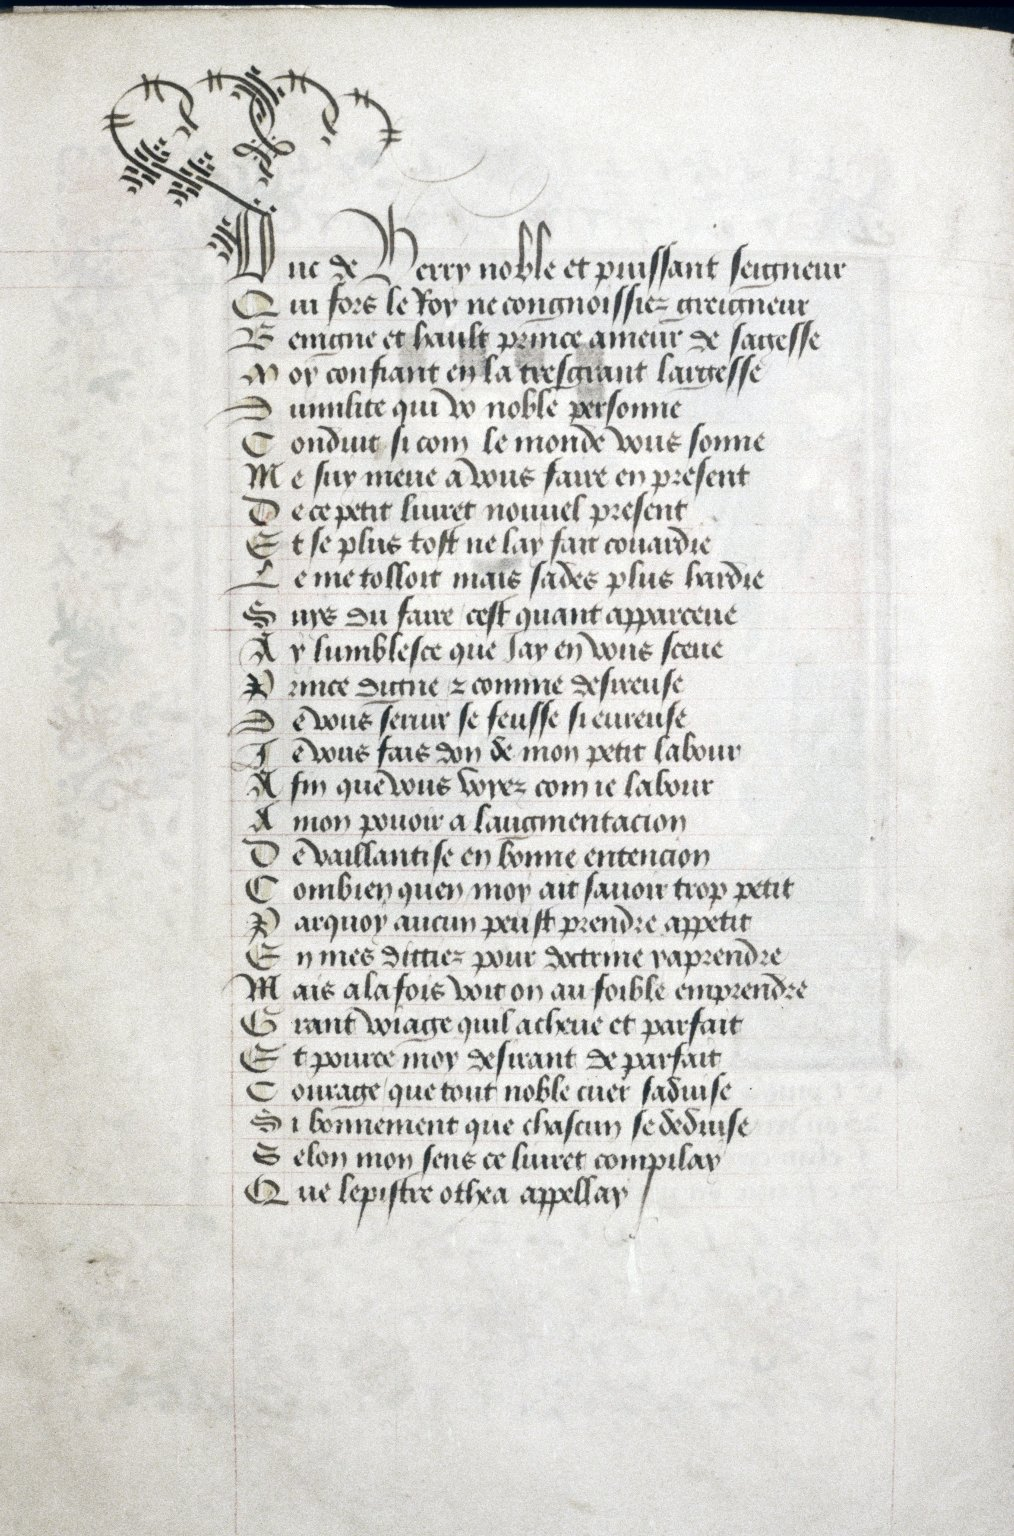 Duc de Berry noble et puissant seigneur
Qui fors le Roy ne congnoissiez greigneur
Benigne et hault prince ameur de sagesse
Moy confiant en la tresgrant largesse
Dumilite qui vo noble personne
Conduit si com le monde vous sonne
Me suy meue a vous faire en present
De ce petit liuret nouuel present
Et se plus tost ne lay fait couardie
Le me tolloit mais sades plus hardie
Suys du faire / cest quant apparceue
Ay lumblesce que Jay en vous sceue
Prince digne et comme desireuse
De vous seruir se feusse si eureuse
Je vous fais don de mon petit labour
Afin que vous voyez com ie labour
A mon pouoir a laugmentacion
De vaillantise en bonne entencion
Combien quen moy ait sauoir trop petit
Parquoy aucun peust prendre appetit
En mes dittiez pour doctrine y aprendre
Mais a la fois voit on au foible emprendre
Grant voiage quil acheue et parfait
Et pource moy desirant de parfait
Courage / que tout noble cuer saduise
Si bonnement que chascun se deduise
Selon mon sens ce liuret compilay
Que lepistre othea appellay